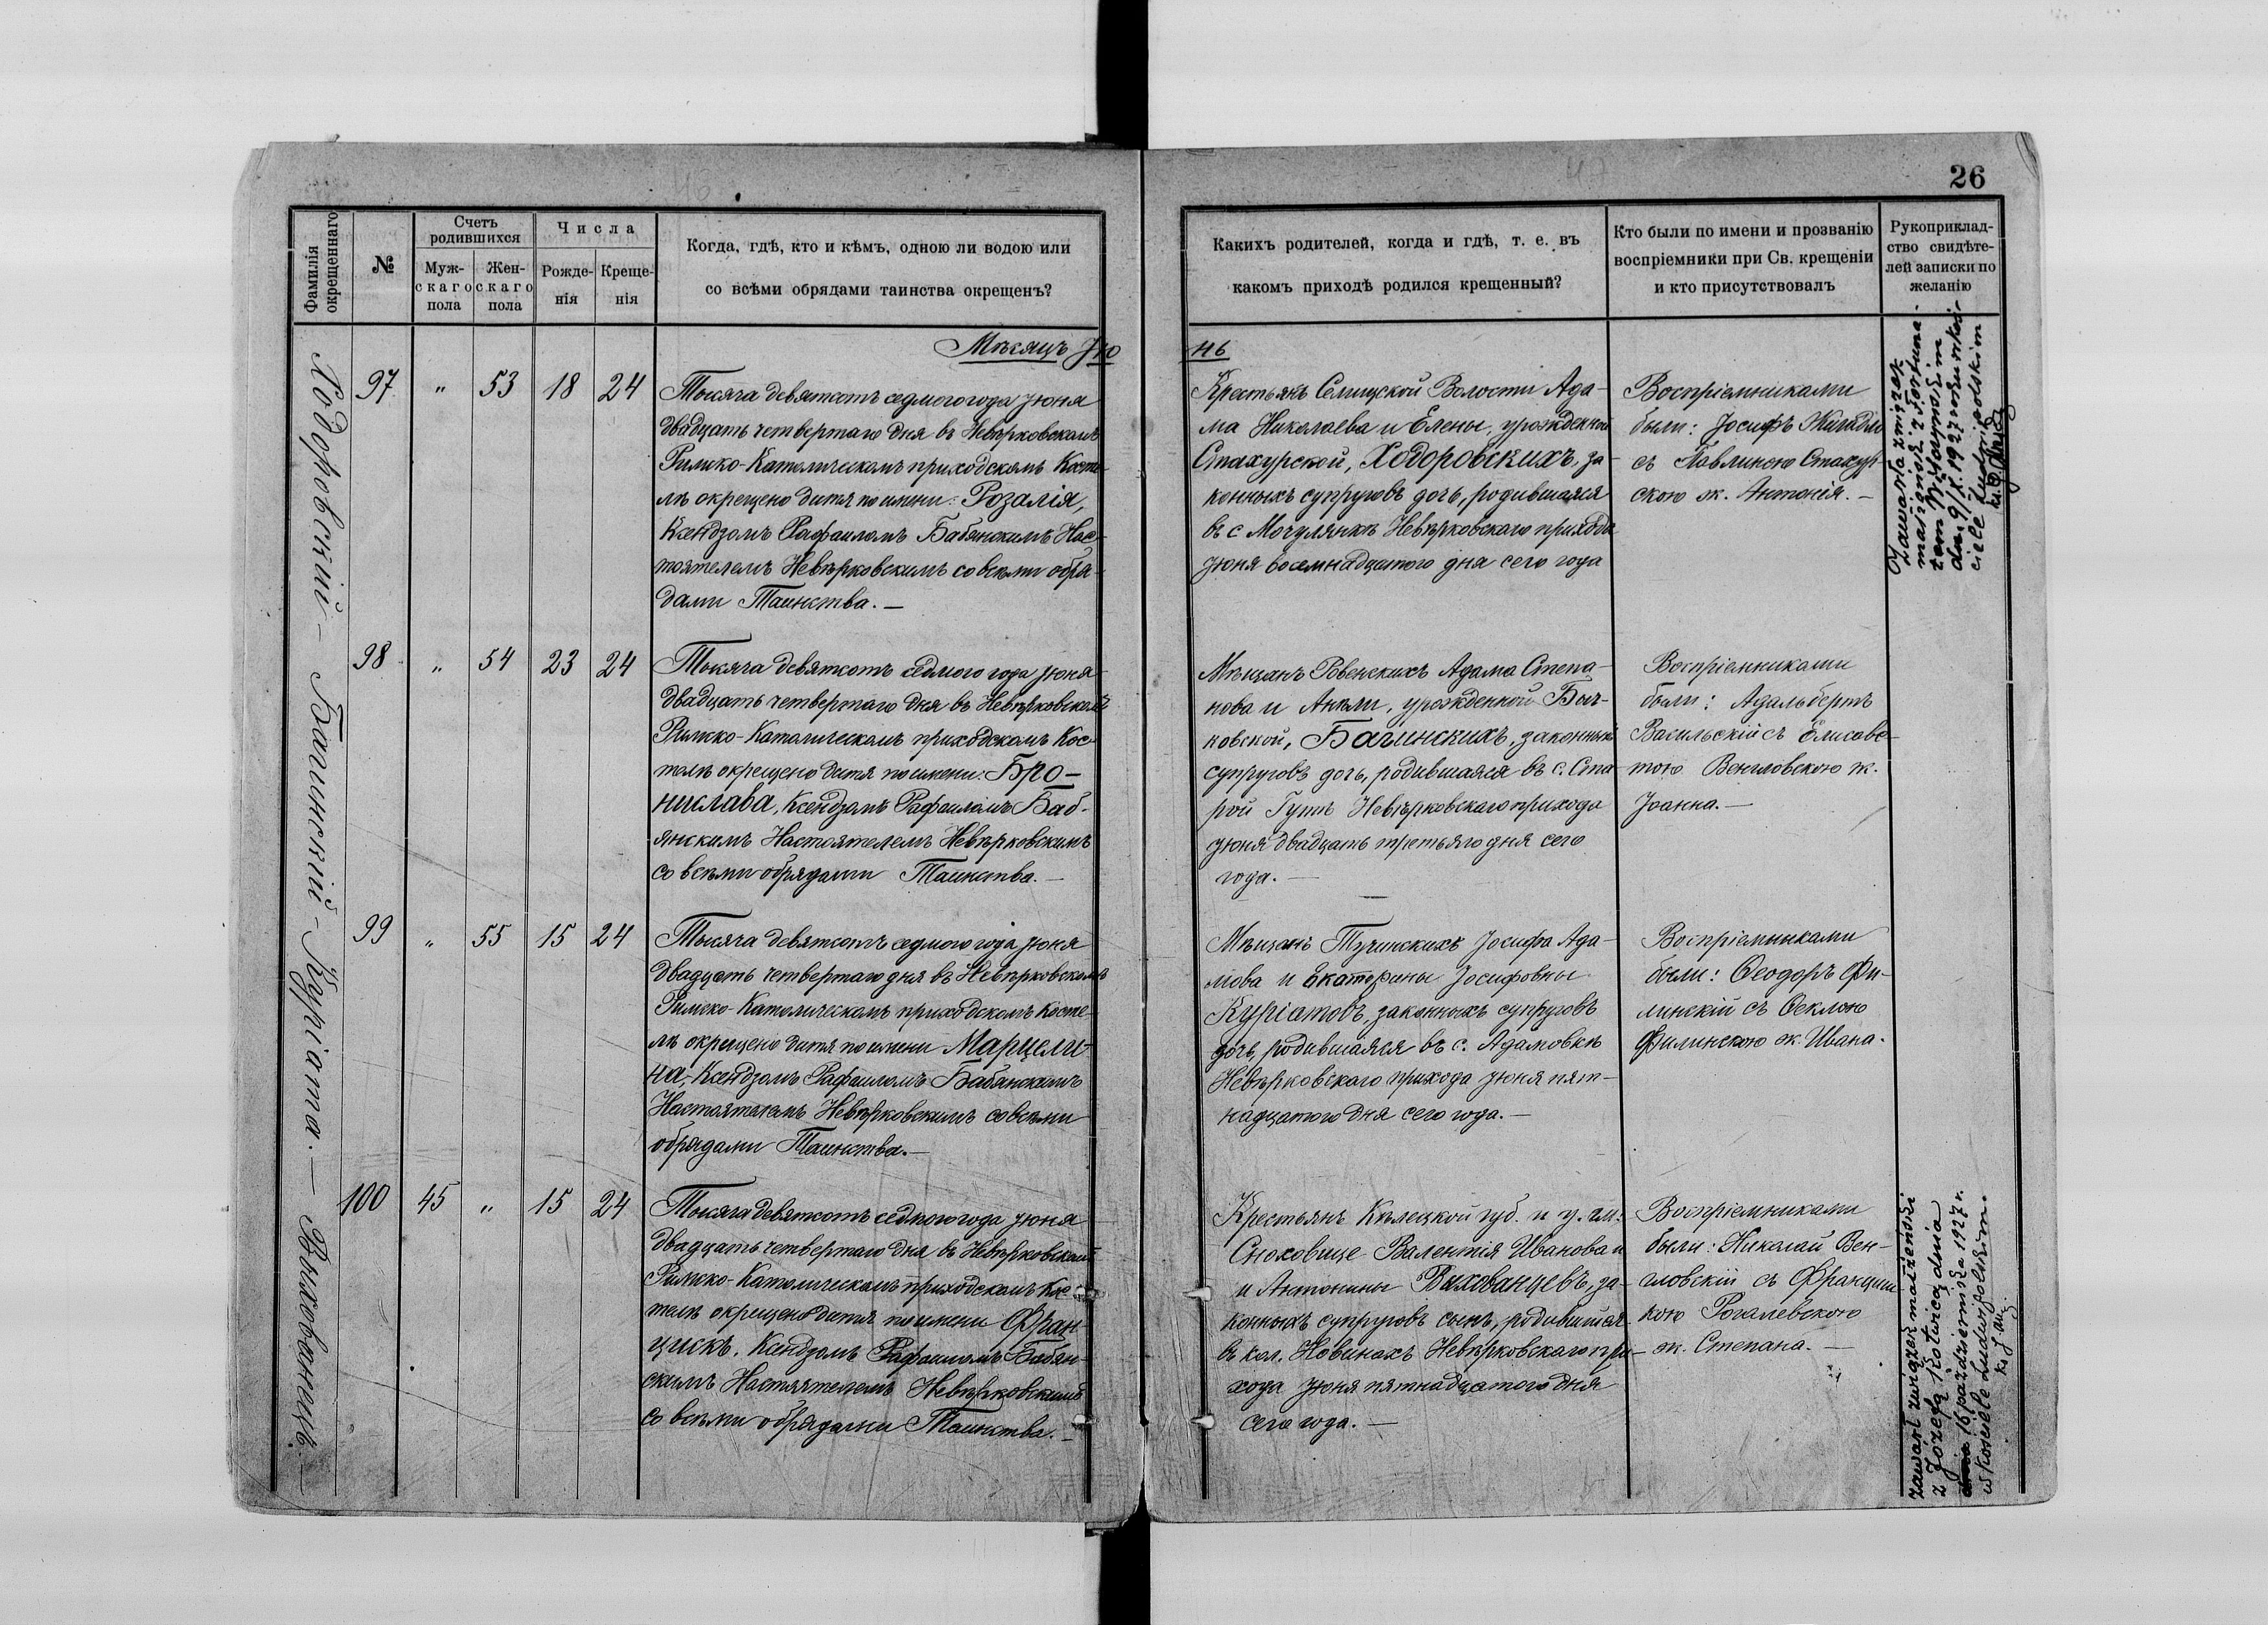 26
Фамилія окрещеннаго
№
Счетъ родившихся
Муж-скаго пола
Жен-скаго пола
Числа
Рожде-нія
Креще-нія
Когда, гдѣ, кто и кѣмъ, одною ли водою или
со всѣми обрядами таинства окрещенъ?
Какихъ родителей, когда и гдѣ, т. е. въ
какомъ приходѣ родился крещенный?
Кто были по имени и прозванію
воспріемники при Св. крещеніи
и кто присутствовалъ
Рукоприклад-
ство свидѣте-
лей записки по
желанію
Мѣсяцъ Ію
нь
Ходоровскій – Багинскій – Куріата. – Выхованецъ. –
97 " 53 18 24
Тысяча девятсотъ седмого года Іюня
двадцать четвертаго дня въ Невѣрковскомъ
Римско-Католическомъ приходскомъ Косте-
лѣ окрещено дитя по имени: Розалія,
Ксендзомъ Рафаиломъ Бабянскимъ Нас-
тоятелемъ Невѣрковскимъ со всѣми обря-
дами Таинства. –
Крестьянъ Селищской Волости Ада-
ма Николаева и Елены, урожденной
Стахурской, Ходоровскихъ, за-
конныхъ супруговъ дочь, родившаяся
въ с. Мочулянкѣ Невѣрковскаго прихода
Іюня восемнадцатого дня сего года
Воспріемниками
были: Іосифъ Жигадло
съ Павлиною Стахур-
скою ж. Антонія. –
Zawarła związek
małżeński z Fortuna-
tem
dn. 9/X. 1927 r. w koś-
ciele Ludwipolskim
98 " 54 23 24
Тысяча девятсотъ седмого года Іюня
двадцать четвертаго дня въ Невѣрковскомъ
Римско-Католическомъ приходскомъ Кос-
телѣ окрещено дитя по имени: Бро-
нислава, Ксендзомъ Рафаиломъ Баб-
янскимъ Настоятелемъ Невѣрковскимъ
со всѣми обрядами Таинства. –
Мѣщанъ Ровенскихъ Адама Степа-
нова и Анели, урожденной Быч-
ковской, Багинскихъ, законныхъ
супруговъ дочь, родившаяся въ с. Ста-
рой Гутѣ Невѣрковскаго прихода
Іюня двадцать третьяго дня сего
года. –
Воспріемниками
были: Адальбертъ
Васильскій съ Елисаве-
тою Венгловскою ж.
Іоанна. –
99 " 55 15 24
Тысяча девятсотъ седмого года Іюня
двадцать четвертаго дня въ Невѣрковскомъ
Римско-Католическомъ приходскомъ Косте-
лѣ окрещено дитя по имени Марцели-
на, Ксендзомъ Рафаиломъ Бабянскимъ
Настоятелемъ Невѣрковскимъ со всѣми
обрядами Таинства. –
Мѣщанъ Тучинскихъ Іосифа Ада-
мова и Екатерины Іосифовны
Куріатовъ, законныхъ супруговъ
дочь, родившаяся въ с. Адамовкѣ
Невѣрковскаго прихода Іюня пят-
надцатого дня сего года. –
Воспріемниками
были: Ѳеодоръ Фи-
линскій съ Ѳеклою
Филинскою ж. Ивана.
100 45 " 15 24
Тысяча девятсотъ седмого года Іюня
двадцать четвертаго дня въ Невѣрковскомъ
Римско-Католическомъ приходскомъ Кос-
телѣ окрещено дитя по имени Фран-
цискъ. Ксендзомъ Рафаиломъ Бабян-
скимъ Настоятелемъ Невѣрковскимъ
со всѣми обрядами Таинства. –
Крестьянъ Кѣлецкой губ. и у. гм.
Сноховице Валентія Иванова и
и Антонины Выхованцевъ, за-
конныхъ супруговъ сынъ, родившійся
въ кол. Новинахъ Невѣрковскаго при-
хода Іюня пятнадцатого дня
сего года. –
Воспріемниками
были: Николай Вен-
гловскій съ Францис-
кою Рогалевскою
ж. Степана. –
Zawarł związek małżeński
z Józefą Kotwicą dnia
16 października 1927 r.
w kościele Ludwipolskim.